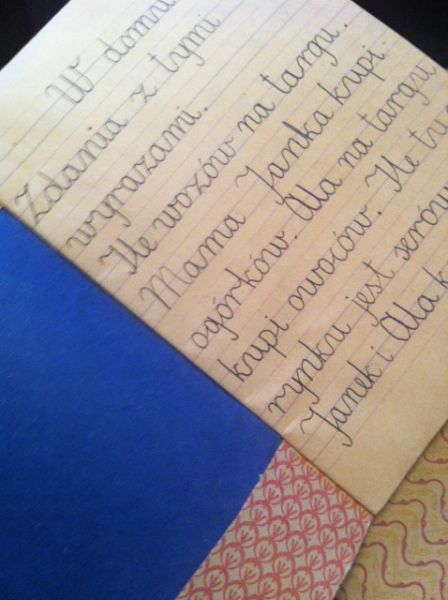 W domu
Zdania z tymi
wyrazami.
Ile wozów na targu.
Mama Janka kupi
ogórków. Ala na targu
kupi owoców. Ile tu
rynku jest serów
Janek i Ala